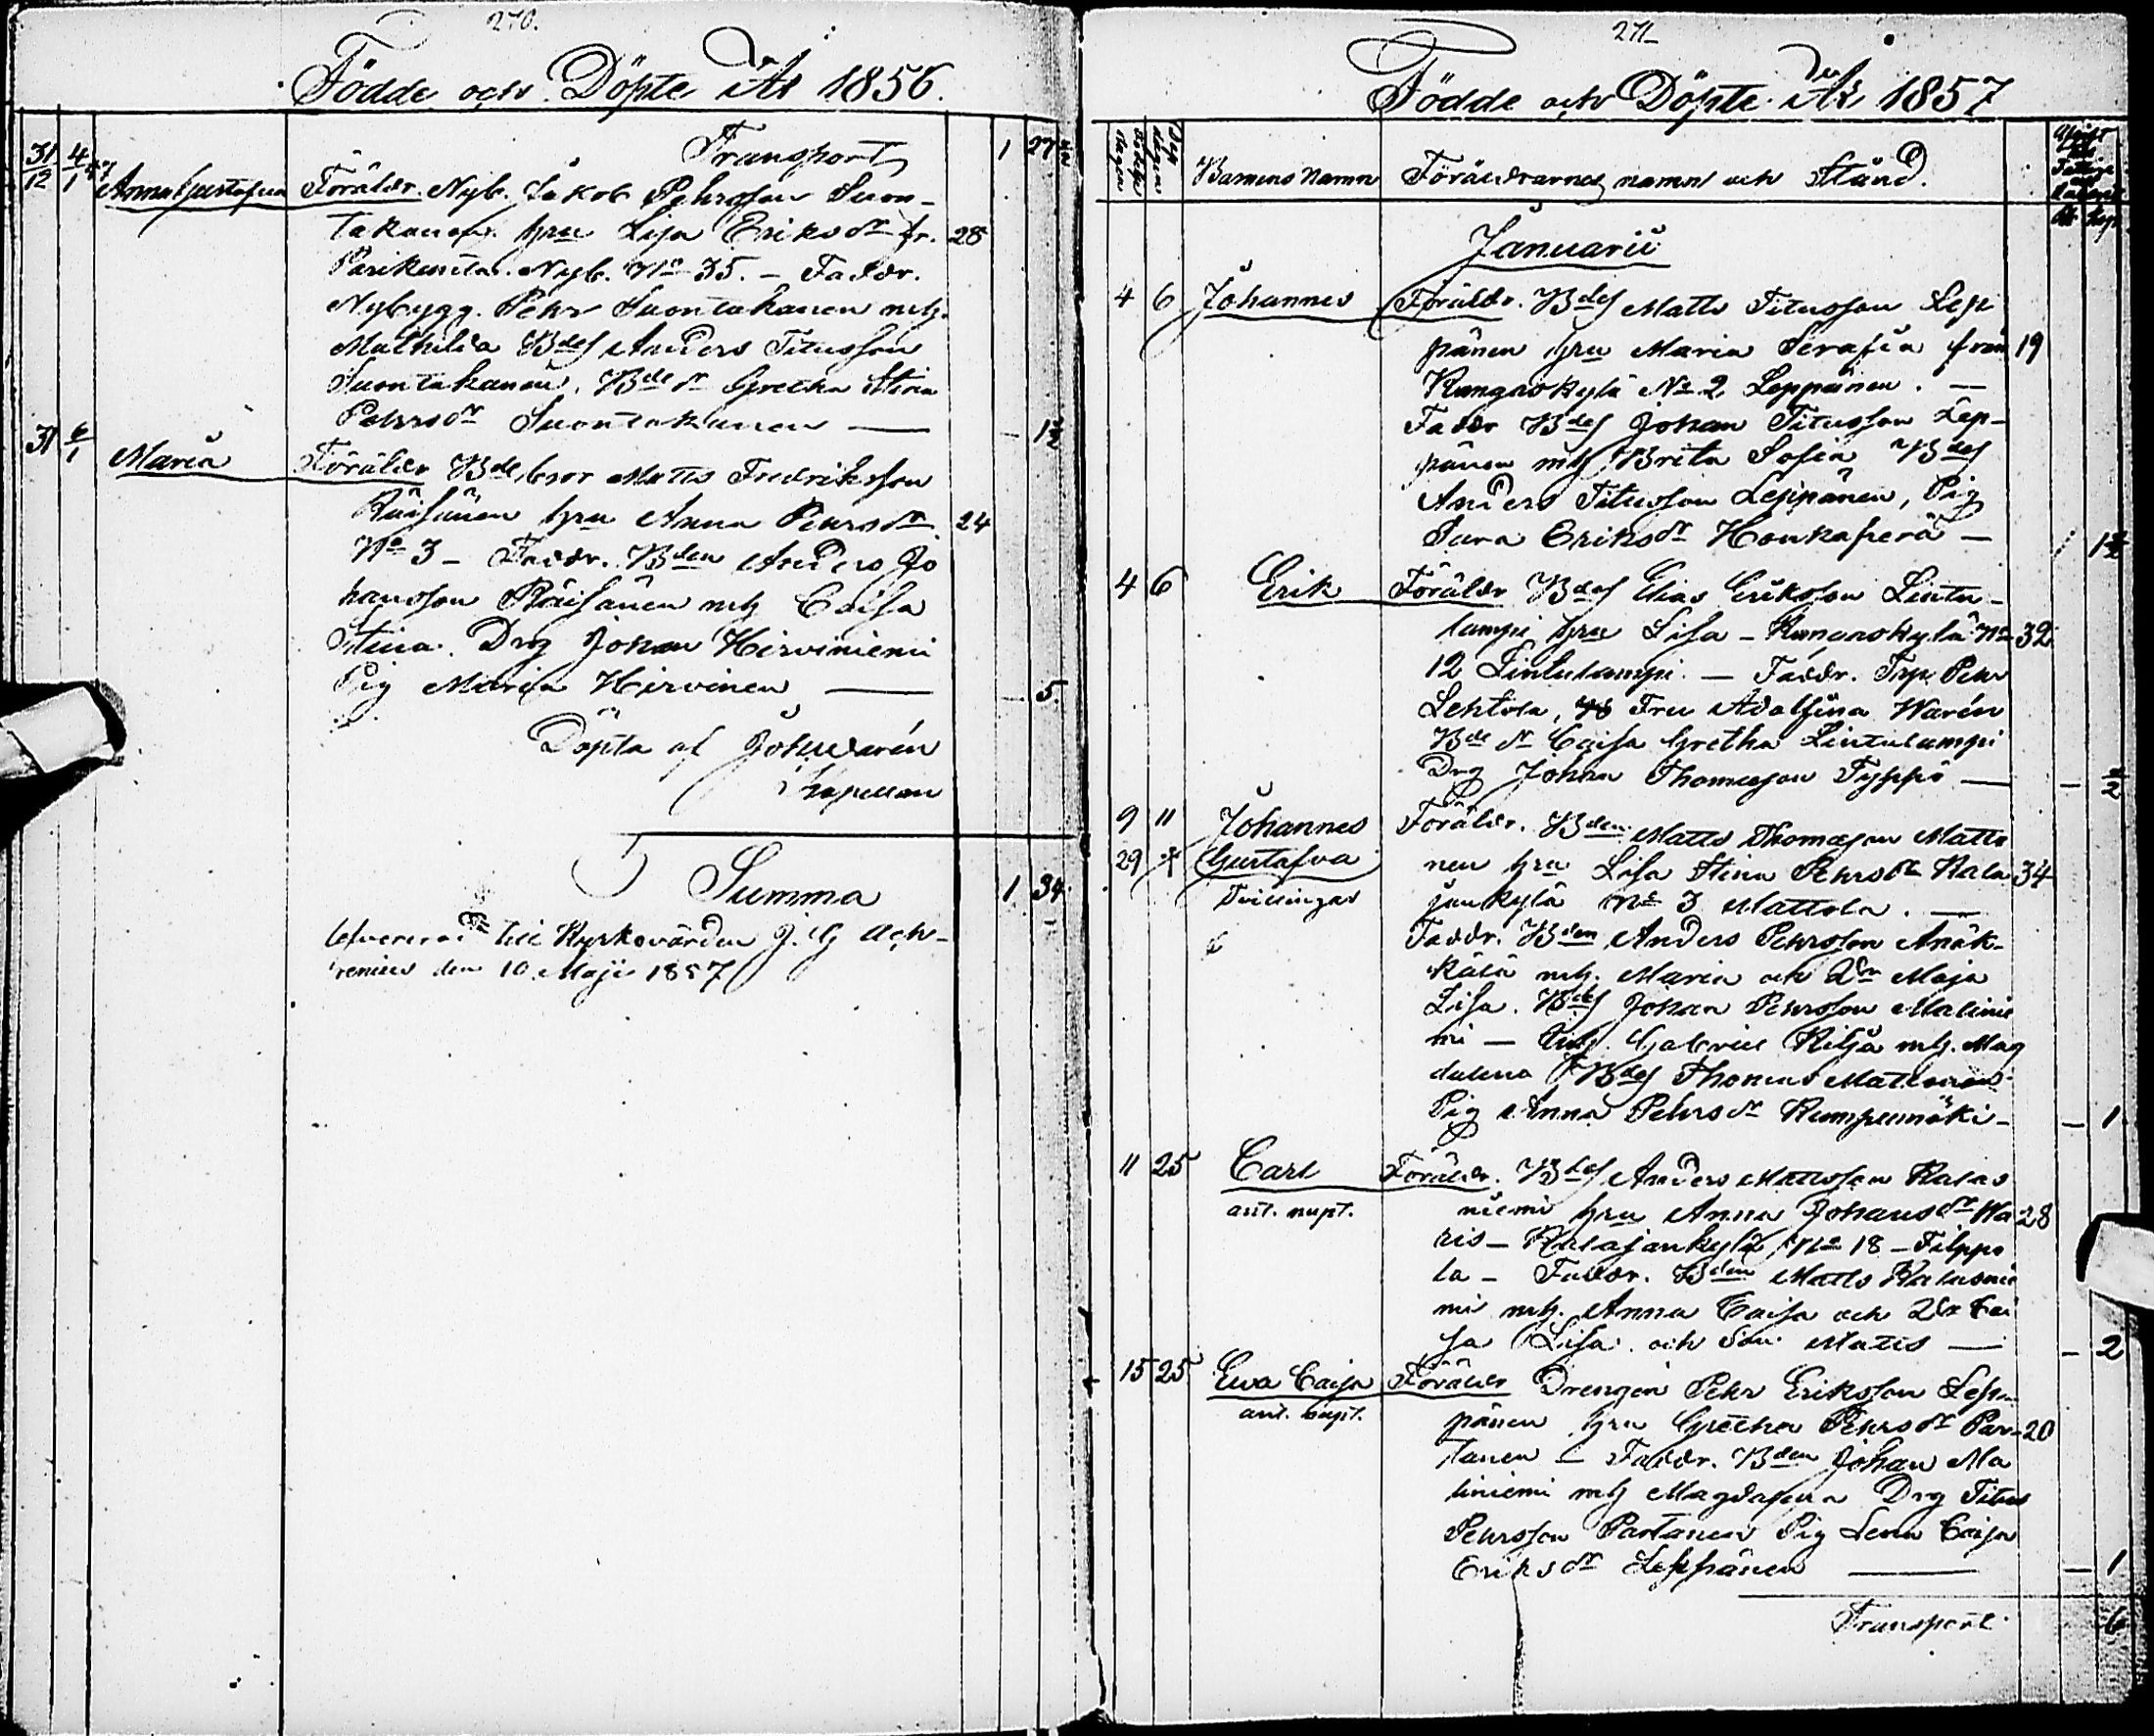 270.
Födde och Döpte År 1856.
Transport 1 27
31/12 4/1 57 Anna Gustafva Föräldr. Nyb. Jakob Pehrsson Suon-
takanen, hru Lisa Eriksdr fr. 28
Nyb. No 35. – Faddr.
Nybygg. Pehr Suontakanen mh.
Mathilda Bdes Anders Titusson
Suontakanen, Bde dr Gretha Stina
Pehrsdr Suontakanen — – 1 1/2
31 6/1 Maria Föräldr Bde bror Matts Fredriksson
Räisänen hru Anna Pehrsdr. 24
No 3 – Faddr. Bden Anders Jo
hansson Räisänen mh Caisa
Stina. Drg Johan Hirviniemi
Pig Maria Hirvinen — 5.
Döpta af Joh. Warén
Kapellan
Summa 1 34
till Kyrkovärden J. G Ach-
renius den 10 Maji 1857
271
Födde och Döpte År 1857
Barnens Namn Föräldrarnes namn och Stånd.
Januarii
4 6 Johannes Föräldr. Bdes Matts Titusson Lep
pänen hru Maria Serafia från 19
Kangaskylä No 2 Leppänen. —
Faddr Bdes Johan Titusson Lep-
pänen mh Brita Sofia Bdes
Anders Titusson Leppänen, Pig
Sara Eriksdr Honkaperä – 1 1/2
4 6 Erik Föräldr Bdes Elias Eriksson Lintu-
lampi hru Lisa – Kangaskylä No 32
12 Lintulampi. — Faddr. Pehr
Lehtola, Fru Adolfina Warén
Bde dr Caisa Gretha Lintulampi
Drg Johan Thomasson Typpö — – 2
9 11 Johannes Föräldr. Bden Matts Thomasson Matto
29 + Gustafva nen hru Lisa Stina Pehrsdr Kala 34
Tvillingar jankylä No 3 Mattola. —
Faddr. Bden Anders Pehrsson Anäk-
kälä mh. Maria och Ddr Maja
Lisa. Bdes Johan Pehrsson Malinie
mi — Gabriel Kiljä mh. Mag
dalena Bdes Thomas Mattonen
Pig Anna Pehrsdr Kumpumäki – – 1
11 25 Carl Föräldr. Bdes Anders Mattsson Kalas
ant. nupt. niemi hru Anna Johansdr Wa 28
ris – Kalajankylä No 18 – Filppo
la – Faddr. Bden Matts Kalasnie
mi mh. Anna Caisa och Ddr Cai
sa Lisa och Son Matts — – 2
15 25 Ewa Caisa Föräldr Drengen Pehr Eriksson Lep-
ant. nupt. pänen hru Gretha Pehrsdr Par- 20
tanen – Faddr. Bden Johan Ma
liniemi mh Magdalena Drg Titus
Pehrsson Partanen Pig Lena Caisa
Eriksdr Leppänen — – 1
Transport 6